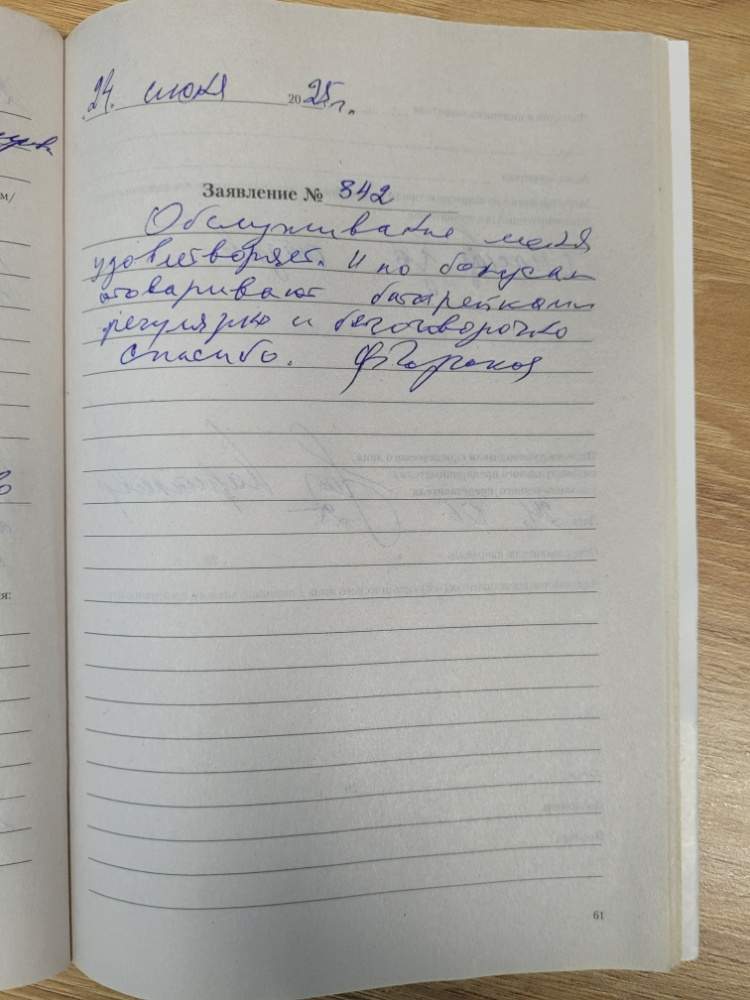 24. июля 2025 г.
Заявление № 342
Обслуживание меня
удовлетворяет. И по бонусам
отоваривают батарейками
регулярно и безоговорочно
Спасибо.
61